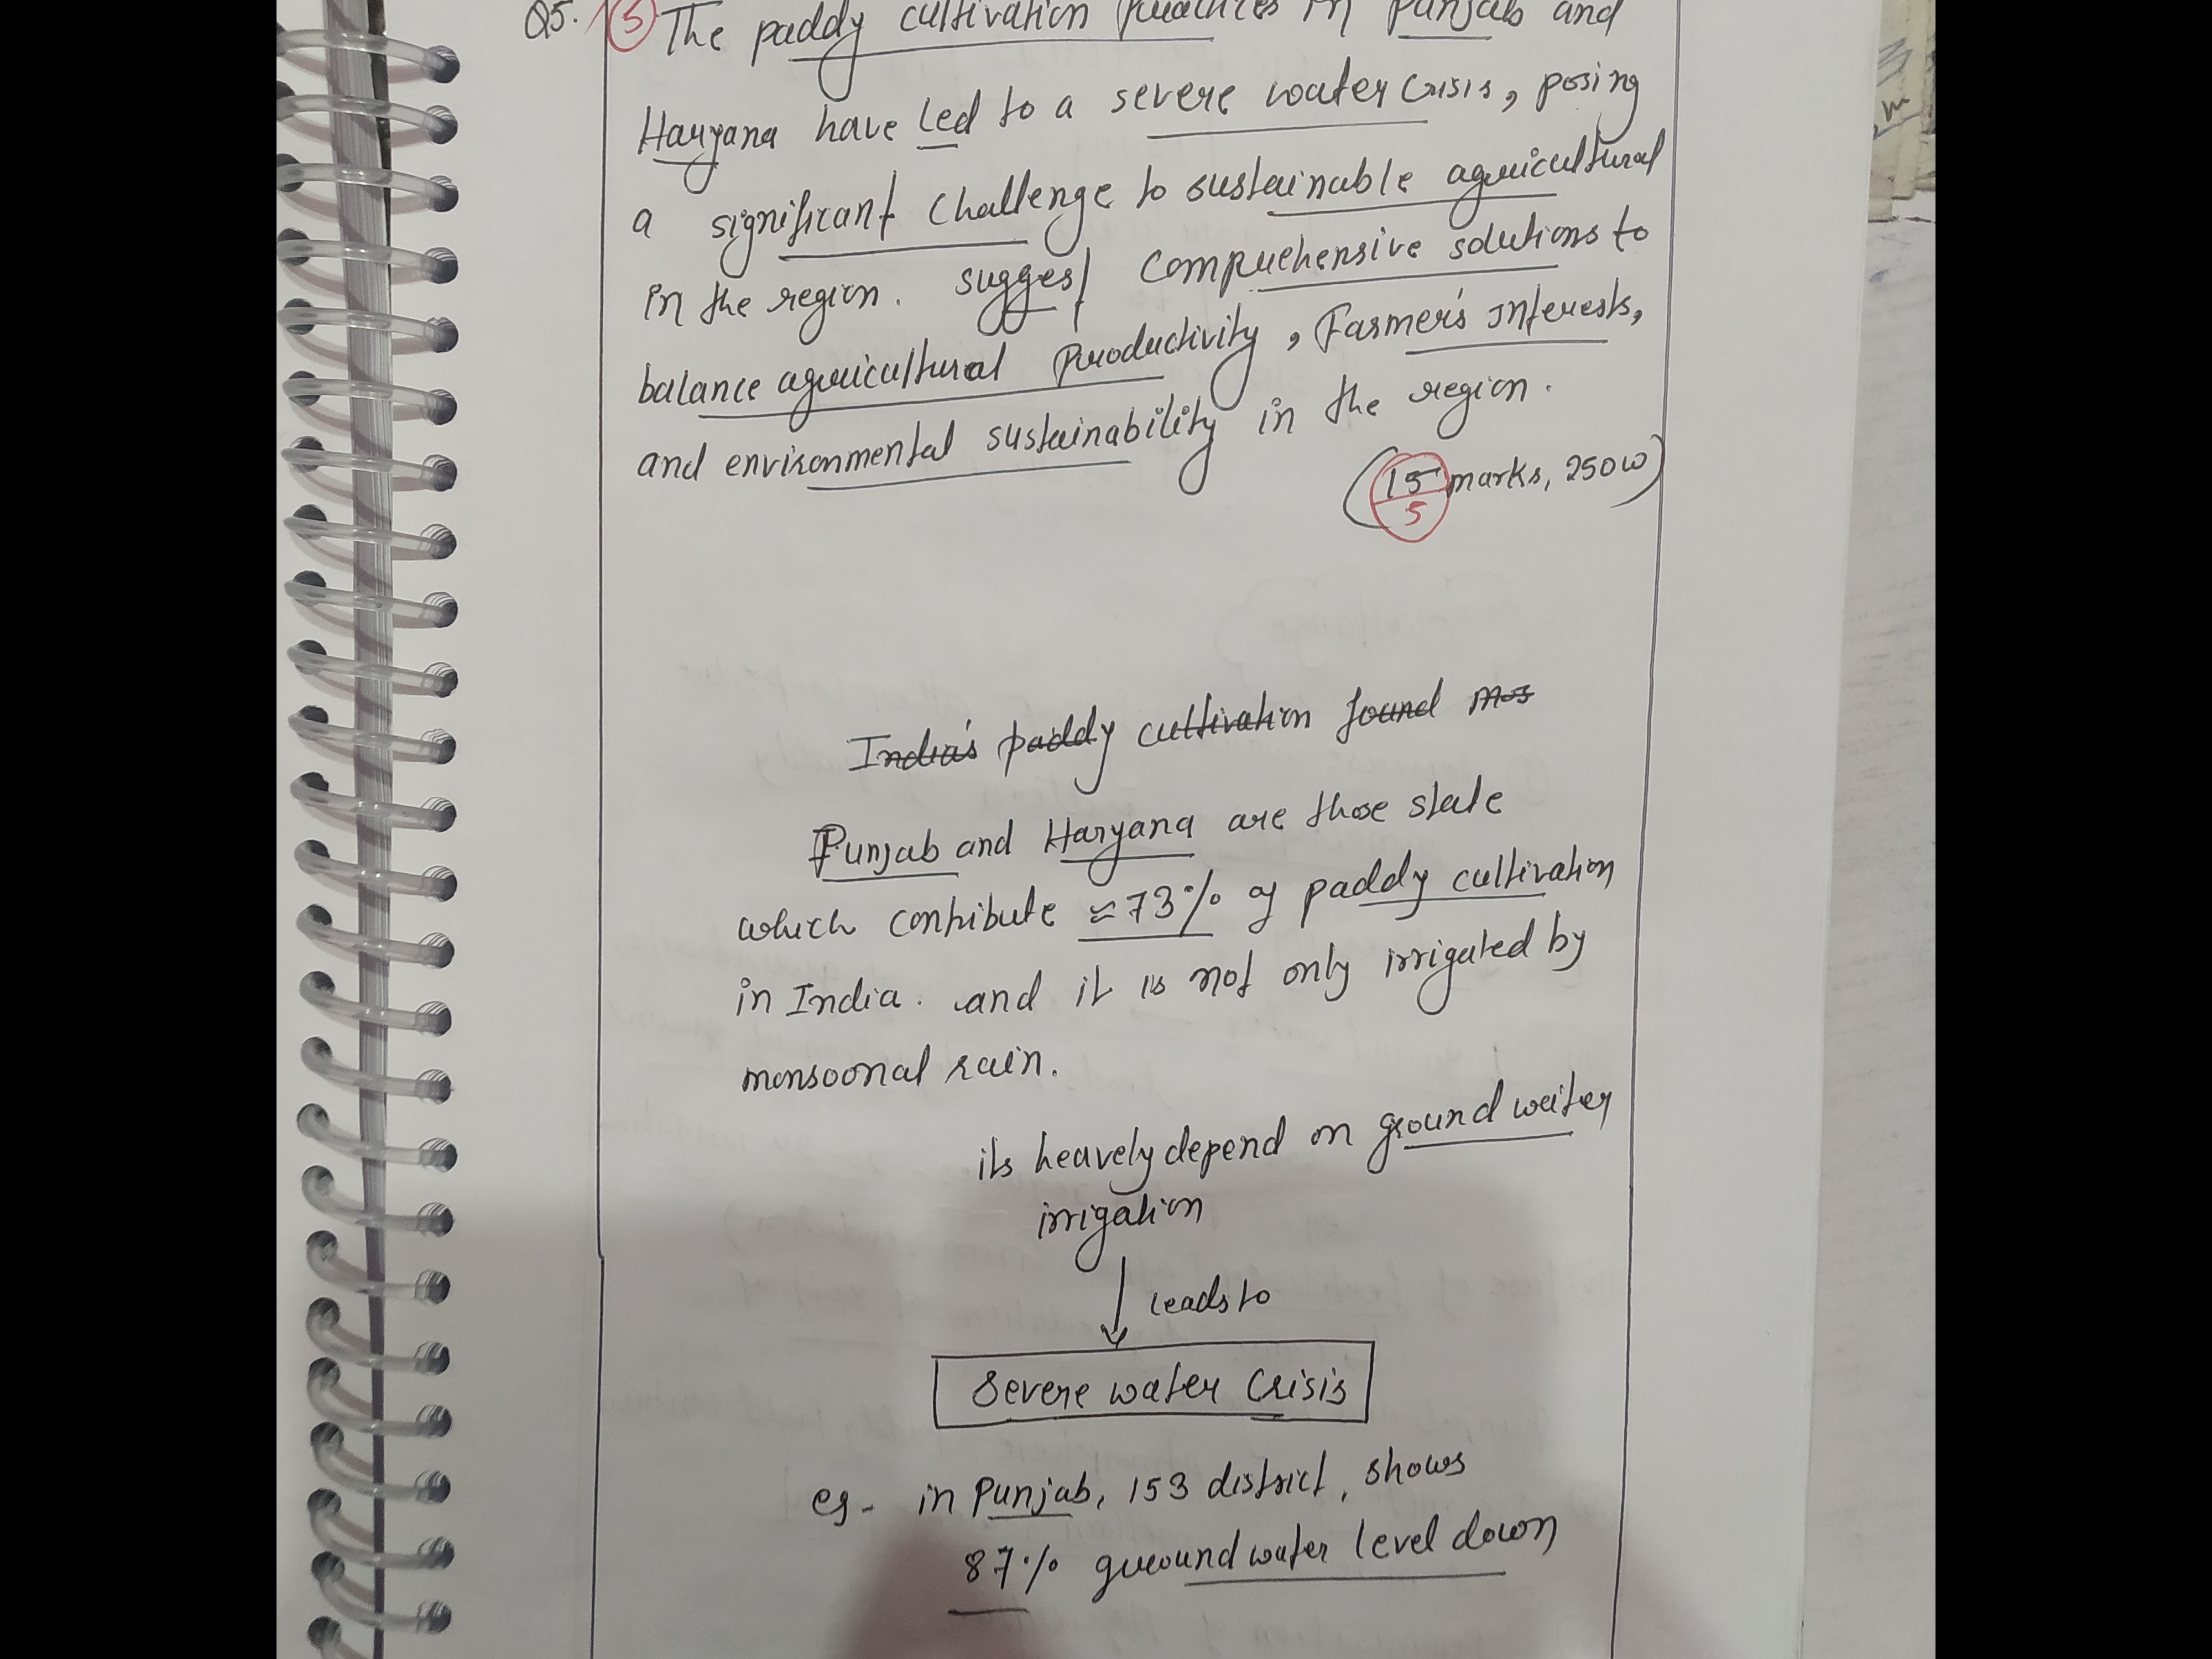 Q5. 5 The paddy cultivation practices in Punjab and
Haryana have led to a severe water crisis, posing
a significant challenge to sustainable agricultural
in the region. suggest comprehensive solutions to
balance agricultural productivity, Farmer's interests,
and environmental sustainability in the region.
(15 marks, 250w)
5
India's paddy cultivation found mos
Punjab and Haryana are those state
which contribute ≈73% of paddy cultivation
in India. and it is not only irrigated by
monsoonal rain.
its heavely depend on ground water
irrigation
leads to
Severe water Crisis
eg- in Punjab, 153 district, shows
87% ground water level down